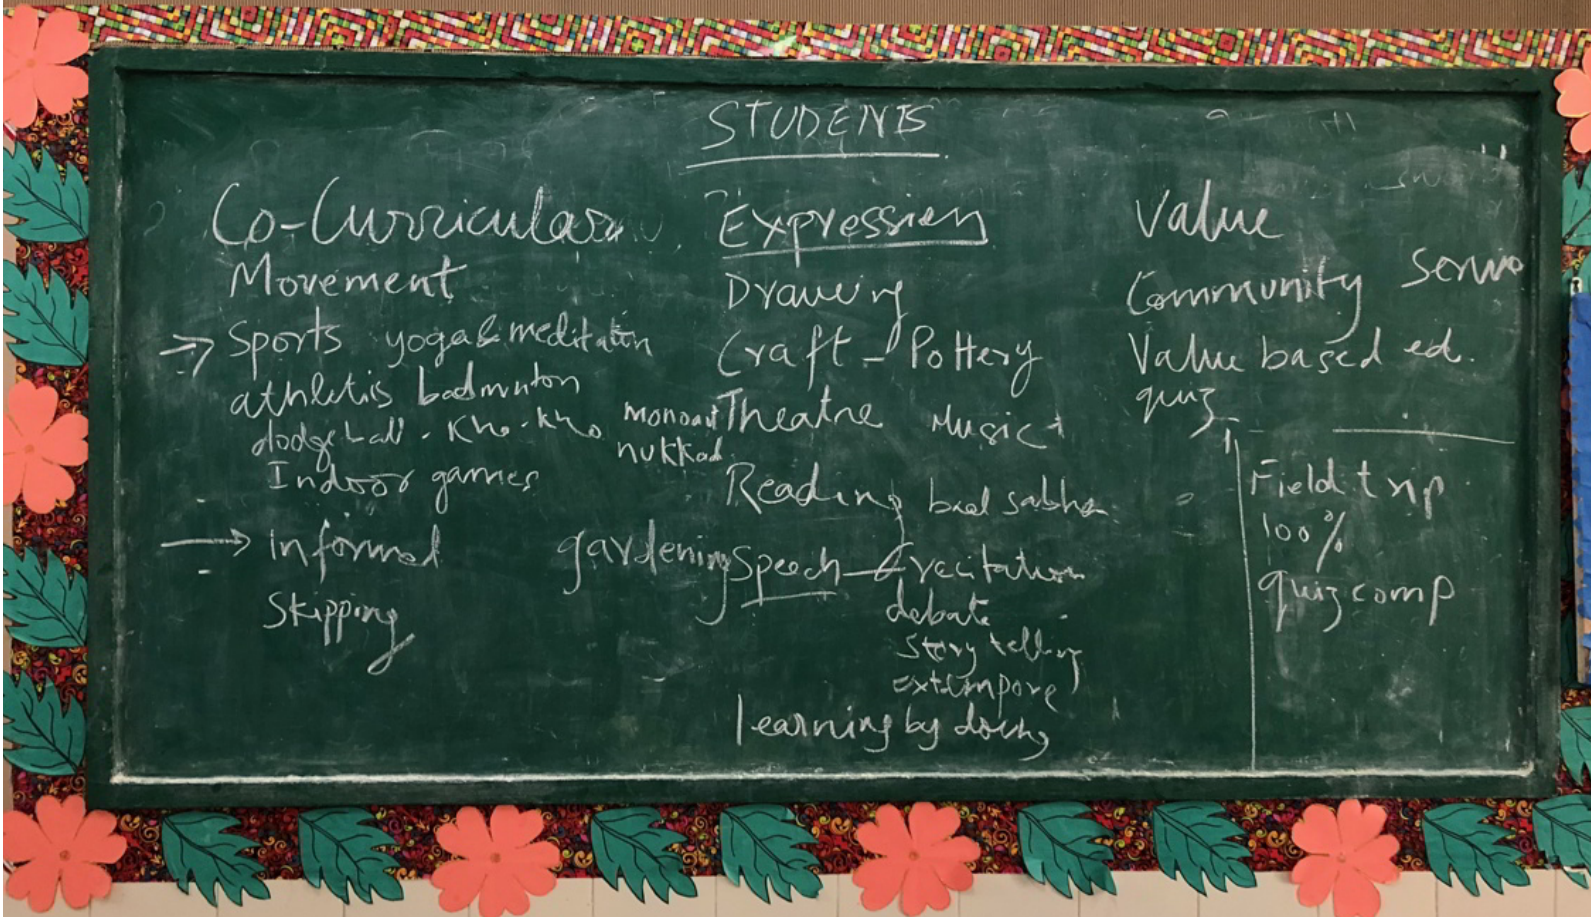 STUDENTS
Co-Curricular
Movement
→ Sports yoga & meditation
athletis badminton
dodge ball - Kho-kho
Indoor games
→ Informal
Skipping
gardening
Expression
Drawing
Craft - Pottery
monoact Theatre Music
nukkad
Reading bal sabha
Speech - recitation
debate
story telling
extempore
learning by doing
Value
Community
Value based ed.
quiz
Field trip
100%
quiz comp